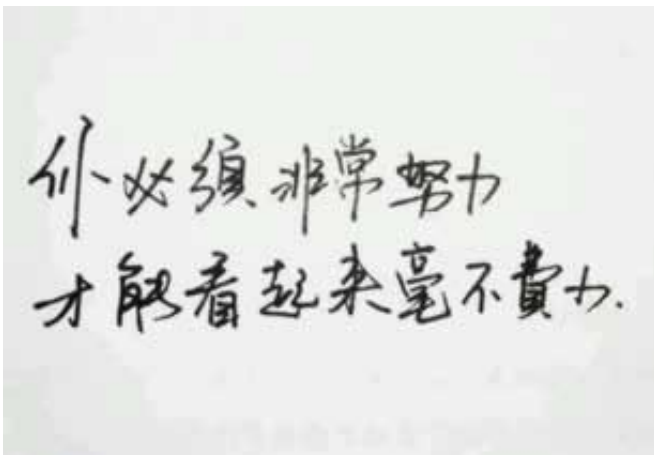 你必须非常努力
才能看起来毫不費力.